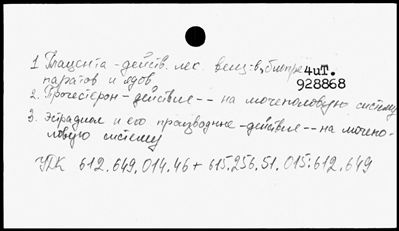 1. Плацента - действ. лек. веществ, биопре-
паратов и ядов
4иТ.
928868
2. Прогестерон - действие -- на мочеполовую систему
3. Эстрадиол и его производные - действие -- на мочепо-
ловую систему
УДК 612.649.014.46 + 615.256.51.015:612.649